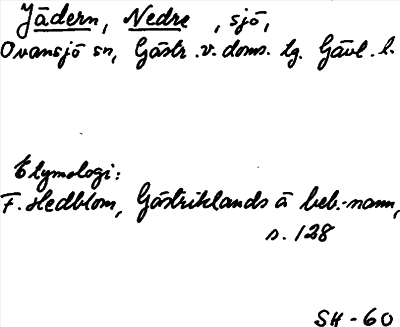 Jädern, Nedre, sjö,
Ovansjö sn, Gästr. v. doms. tg. Gävl. l.
Etymologi:
F. Hedblom, Gästriklands ä beb.-namn,
s. 128
SH-60